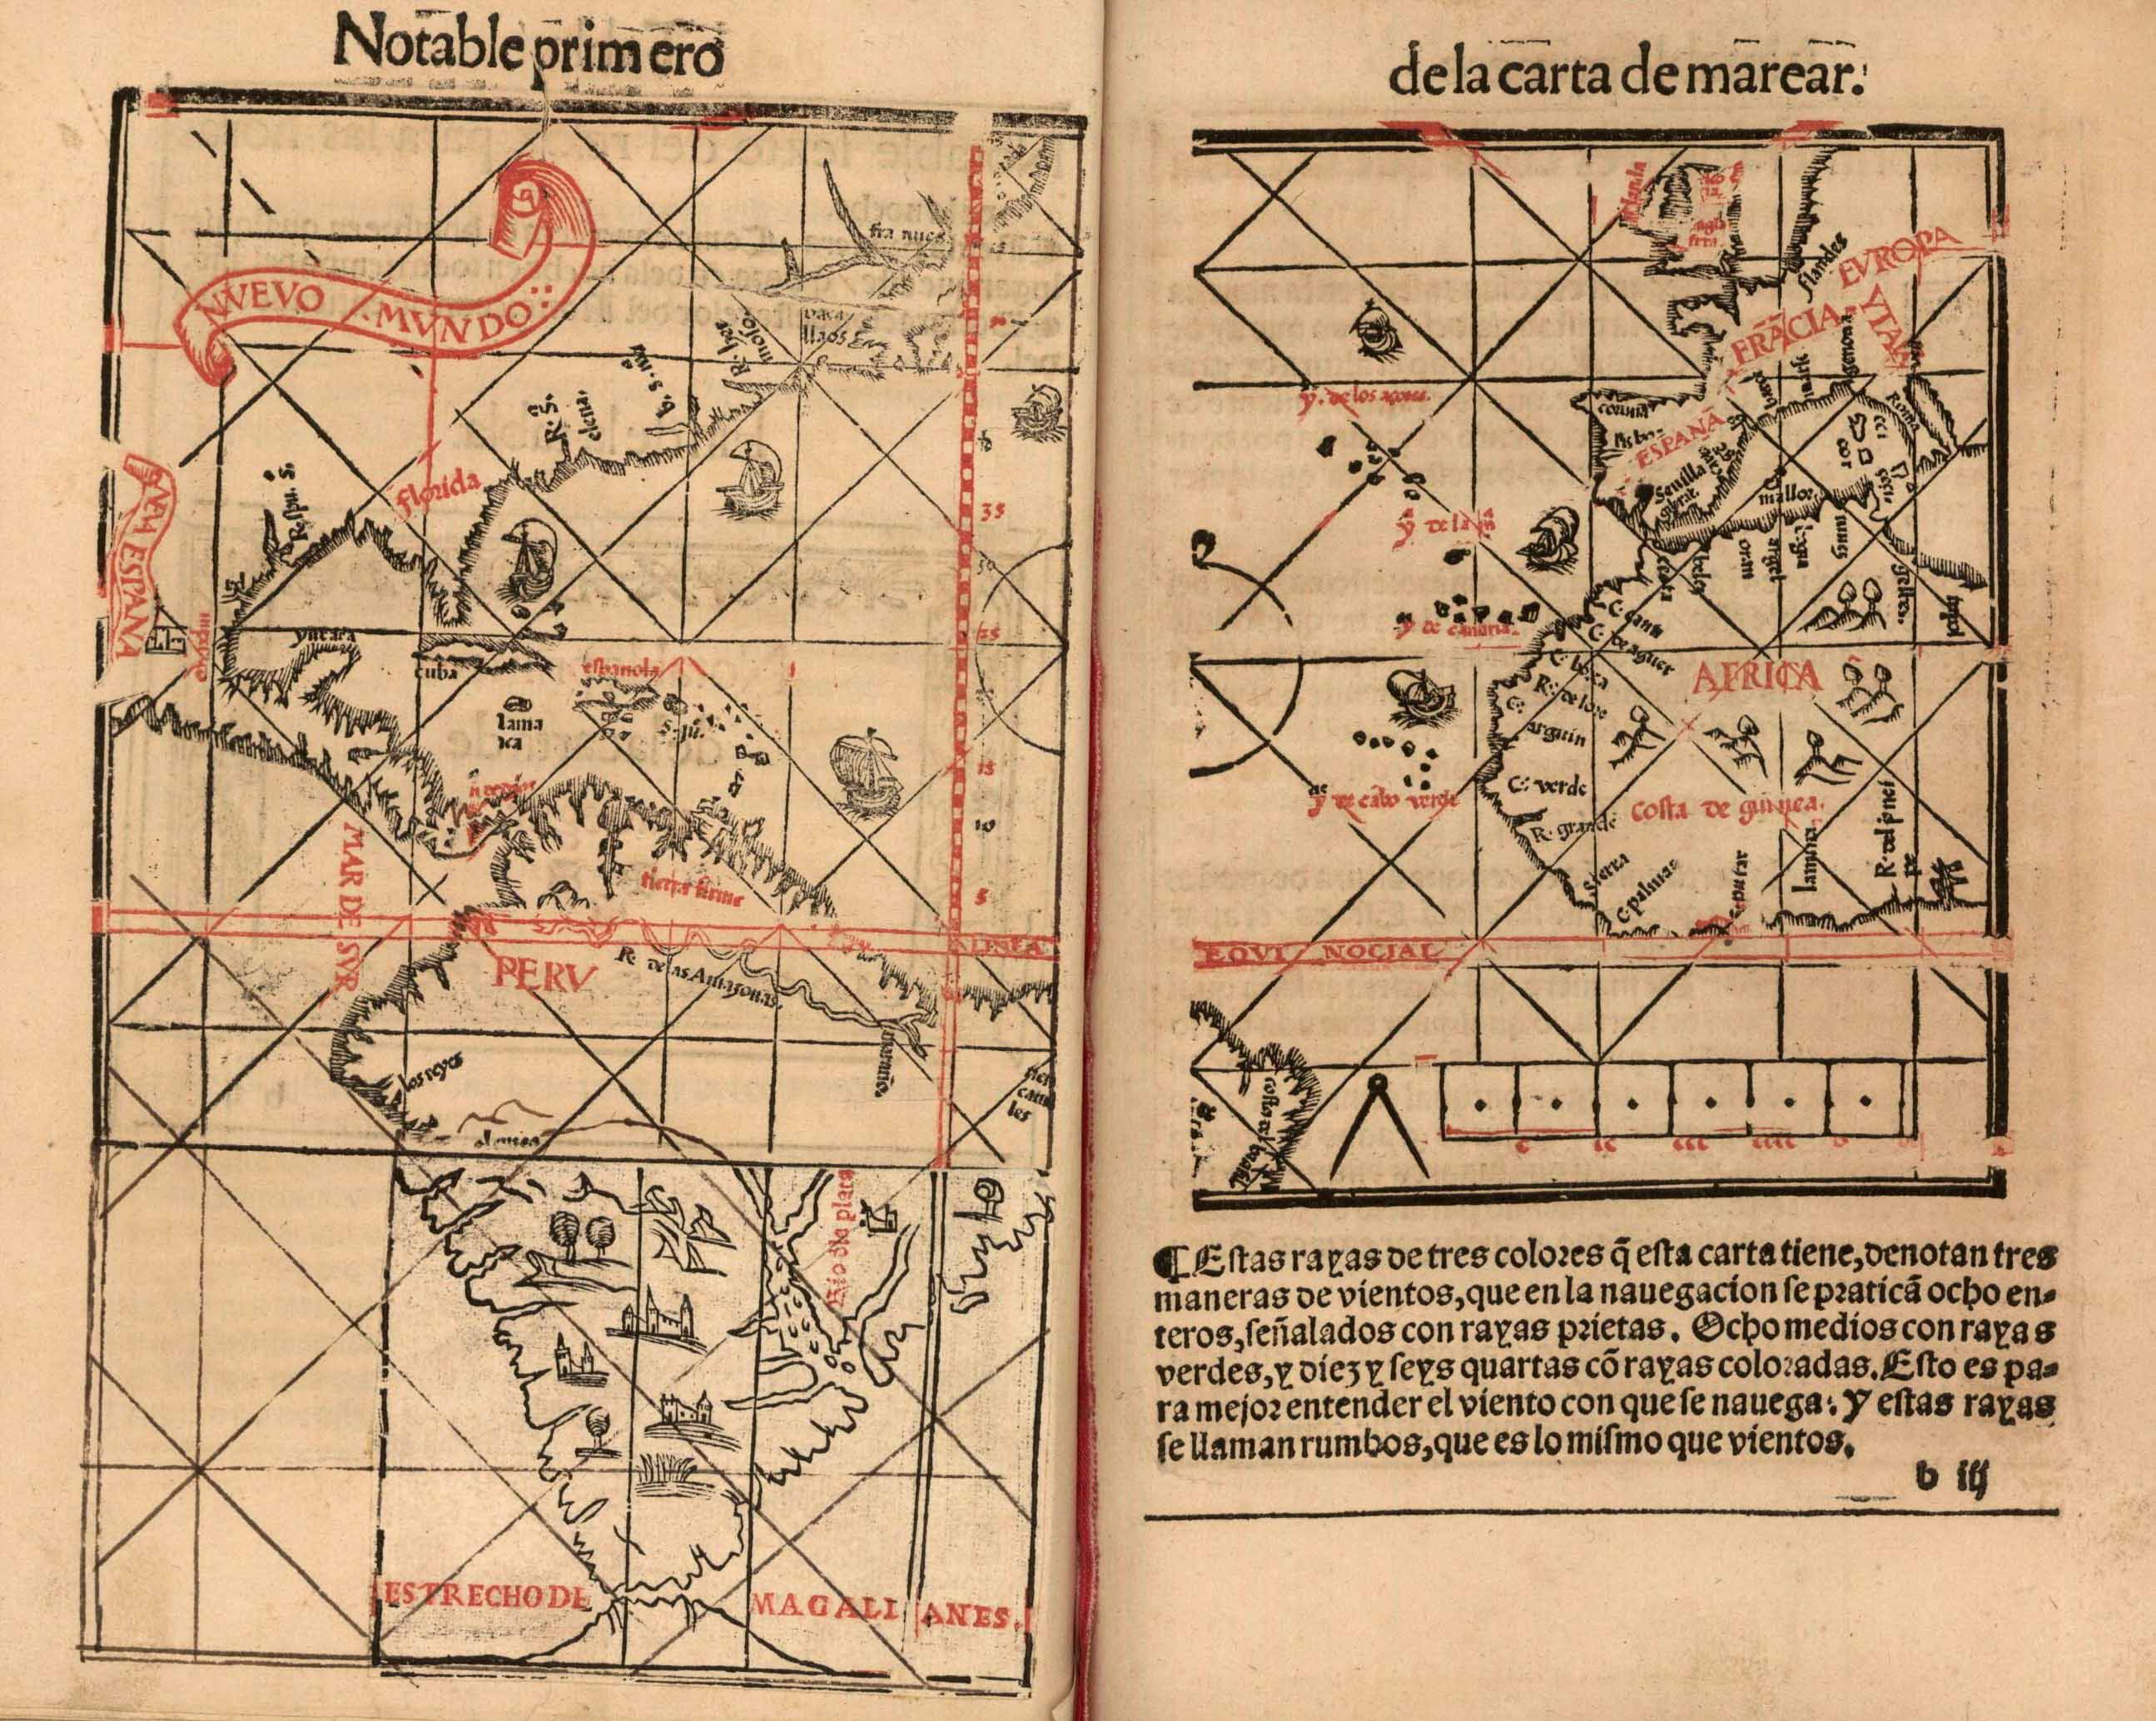 Notable primero
NVEVO MVNDO
R. S.
elena
florida
ESPANA
cuba
española
Iama
ica
tierra firme
MAR DE SVR
LINEA
PERV
R. de las Amazonas.
los reyes
35
25
15
10
5
ESTRECHO DE MAGALLANES.
de la carta de marear:
flandes
EVROPA
FRĀCIA
y. de los açores.
ESPAÑA
Seuilla
mallor.
oran
argel
tunez
Roma
y de canaria.
AFRICA
C. verde
R. grande
Costa de guinea.
Sierra
C. palmas
y de cabo verde
EQVI NOCIAL
¶ Estas rayas de tres colores q̃ esta carta tiene, denotan tres
maneras de vientos, que en la nauegacion se praticã ocho en-
teros, señalados con rayas prietas. Ocho medios con rayas
verdes, y diez y seys quartas cõ rayas coloradas. Esto es pa-
ra mejor entender el viento con que se nauega: Y estas rayas
se llaman rumbos, que es lo mismo que vientos.
b iij